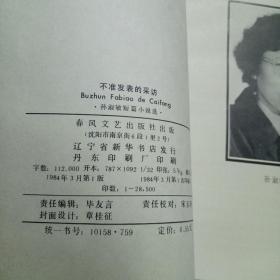 不准发表的采访
Buzhun Fabiao de Caifang
·孙淑敏短篇小说选·
春风文艺出版社出版
(沈阳市南京街6段1里2号)
辽宁省新华书店发行
丹东印刷厂印刷
字数：112,000 开本：787×1092 1/32 印张：5⅝
1984年3月第1版 1984年3月第1次印
印数：1—28,500
责任编辑：毕友言 责任校对：宋
封面设计：章桂征
统一书号：10158·759 定价：0.
孙淑